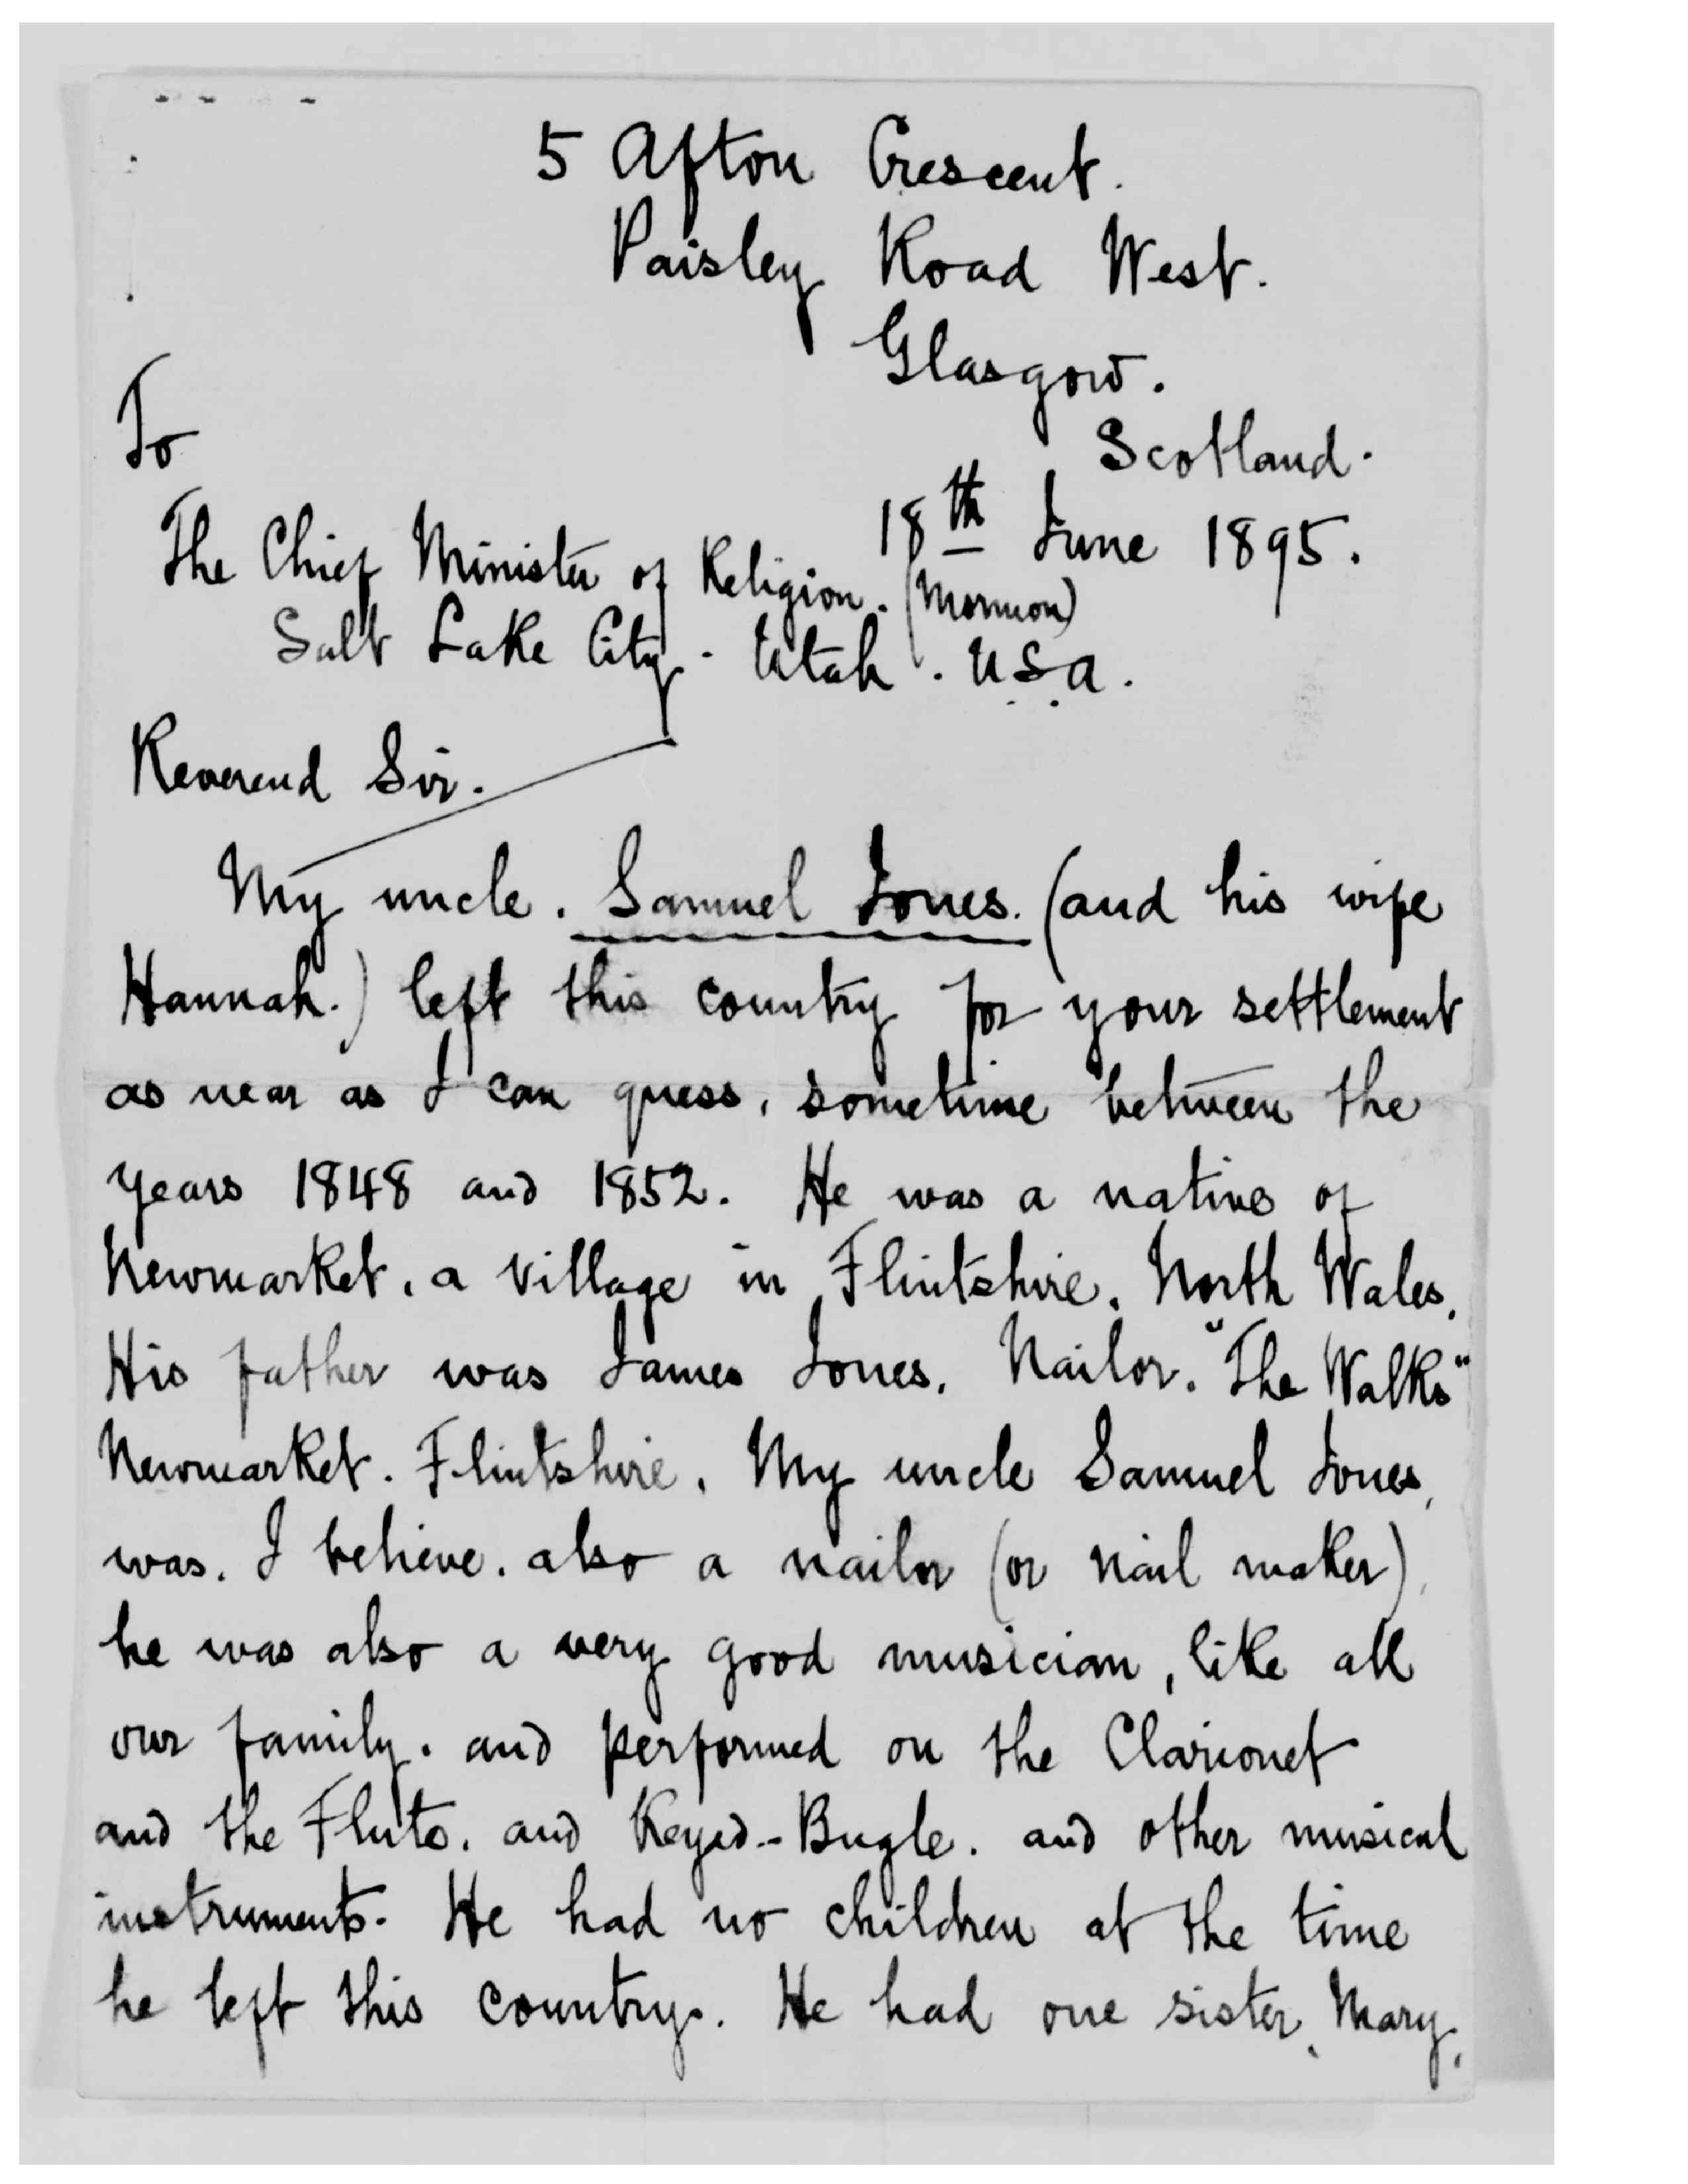 5 Afton Crescent.
Paisley Road West.
Glasgow.
Scotland.
18th June 1895.
To
The Chief Minister of Religion. (Mormon)
Salt Lake City. Utah. U.S.A.
Reverend Sir.
My uncle. Samuel Jones. (and his wife
Hannah.) left this country for your settlement
as near as I can guess, sometime between the
years 1848 and 1852. He was a native of
Newmarket, a village in Flintshire. North Wales.
His father was James Jones. Nailor. "The Walks"
Newmarket. Flintshire. My uncle Samuel Jones,
was. I believe. also a nailor (or nail maker),
he was also a very good musician, like all
our family. and performed on the Clarionet
and the Flute. and Keyed-Bugle. and other musical
instruments. He had no children at the time
he left this country. He had one sister, Mary,